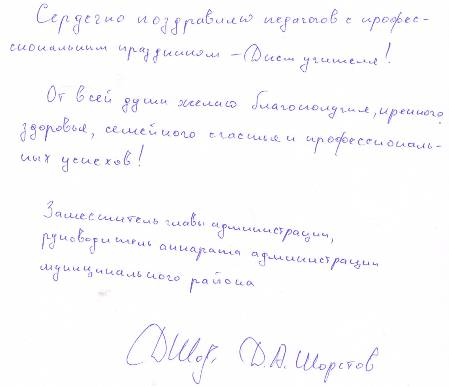 Сердечно поздравляю педагогов с профес-
сиональным праздником – Днем учителя!
От всей души желаю благополучия, крепкого
здоровья, семейного счастья и профессиональ-
ных успехов!
Заместитель главы администрации,
руководитель аппарата администрации
муниципального района
Д.А. Шорстов